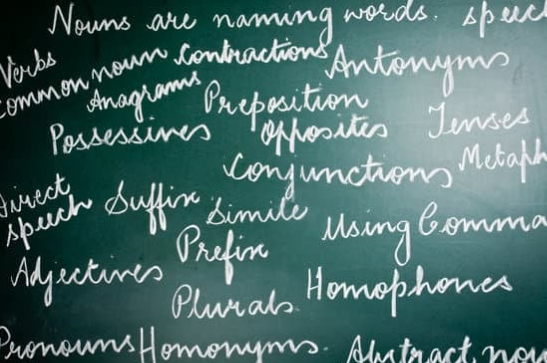 Nouns are naming words. speec
Verbs
common noun contractions Antonyms
Anagrams Preposition
Possessives Opposites Tenses
Conjunctions Metaph
Direct
speech Suffix Simile Using Comma
Prefix
Adjectives Homophones
Plurals
Pronouns Homonyms. Abstract nou